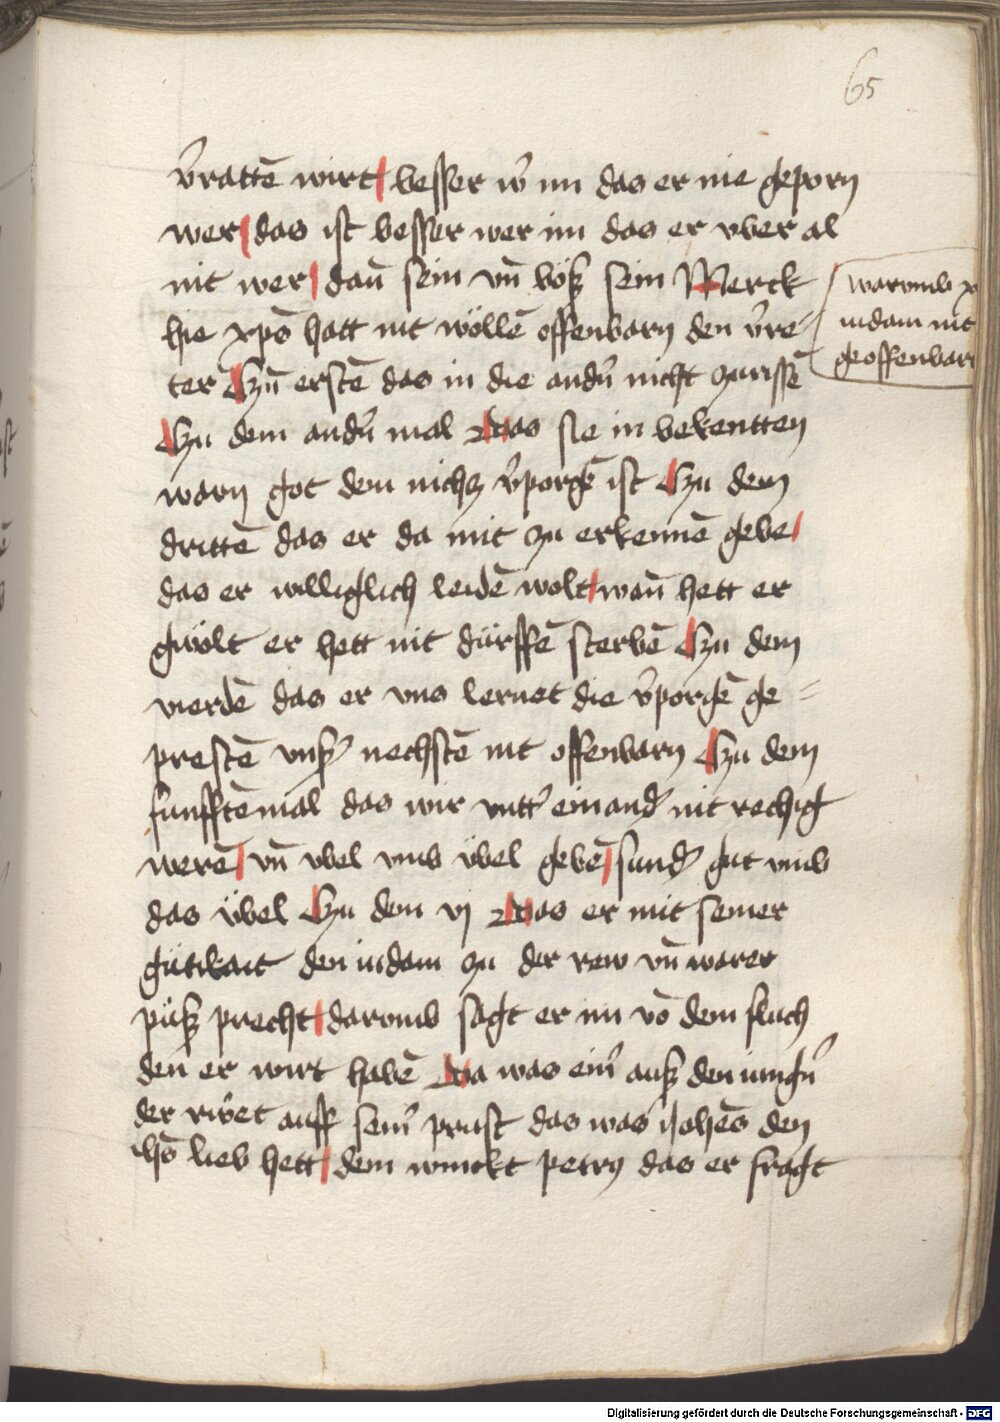 65
v̄rattē wirt besser w̄ im das er nie geporn
wer das ist besser wer im das er vber al
nit wer dan̄ sein vn̄ böß sein Merck
hie xp̄s hatt nit wöllē offenbarn den v̄re=
ter Czū erstē das in die andn̄ nicht zurissē
Czu dem andn̄ mal Das sie in bekentten
warn got dem nichcz v̄porgē ist Czu dem
drittē das er da mit zu erkennē gebe
das er williglich leidē wolt wan̄ hett er
gwölt er hett nit dürffē sterbē Czu dem
vierdē das er vns lernet die v̄porgē ge=
prestē vnß̄ nechstē nit offenbarn Czu dem
funfftēmal das wir vntt̄ einand̄ nit rechig
werē vn̄ vbel vmb übel gebē sund̄ gut vmb
das übel Czu dem vj Das er mit seiner
gütikait den iudam zu der rew vn̄ warer
püß precht darvmb sagt er im vō dem fluch
den er wirt habē Da was ein̄ auß den iungn̄
der rwet auff sein̄ prust das was ioh̄es den
ih̄s lieb hett dem winckt petrus das er fragt
warvmb x
iudam nit
geoffenbar
Digitalisierung gefördert durch die Deutsche Forschungsgemeinschaft - DFG